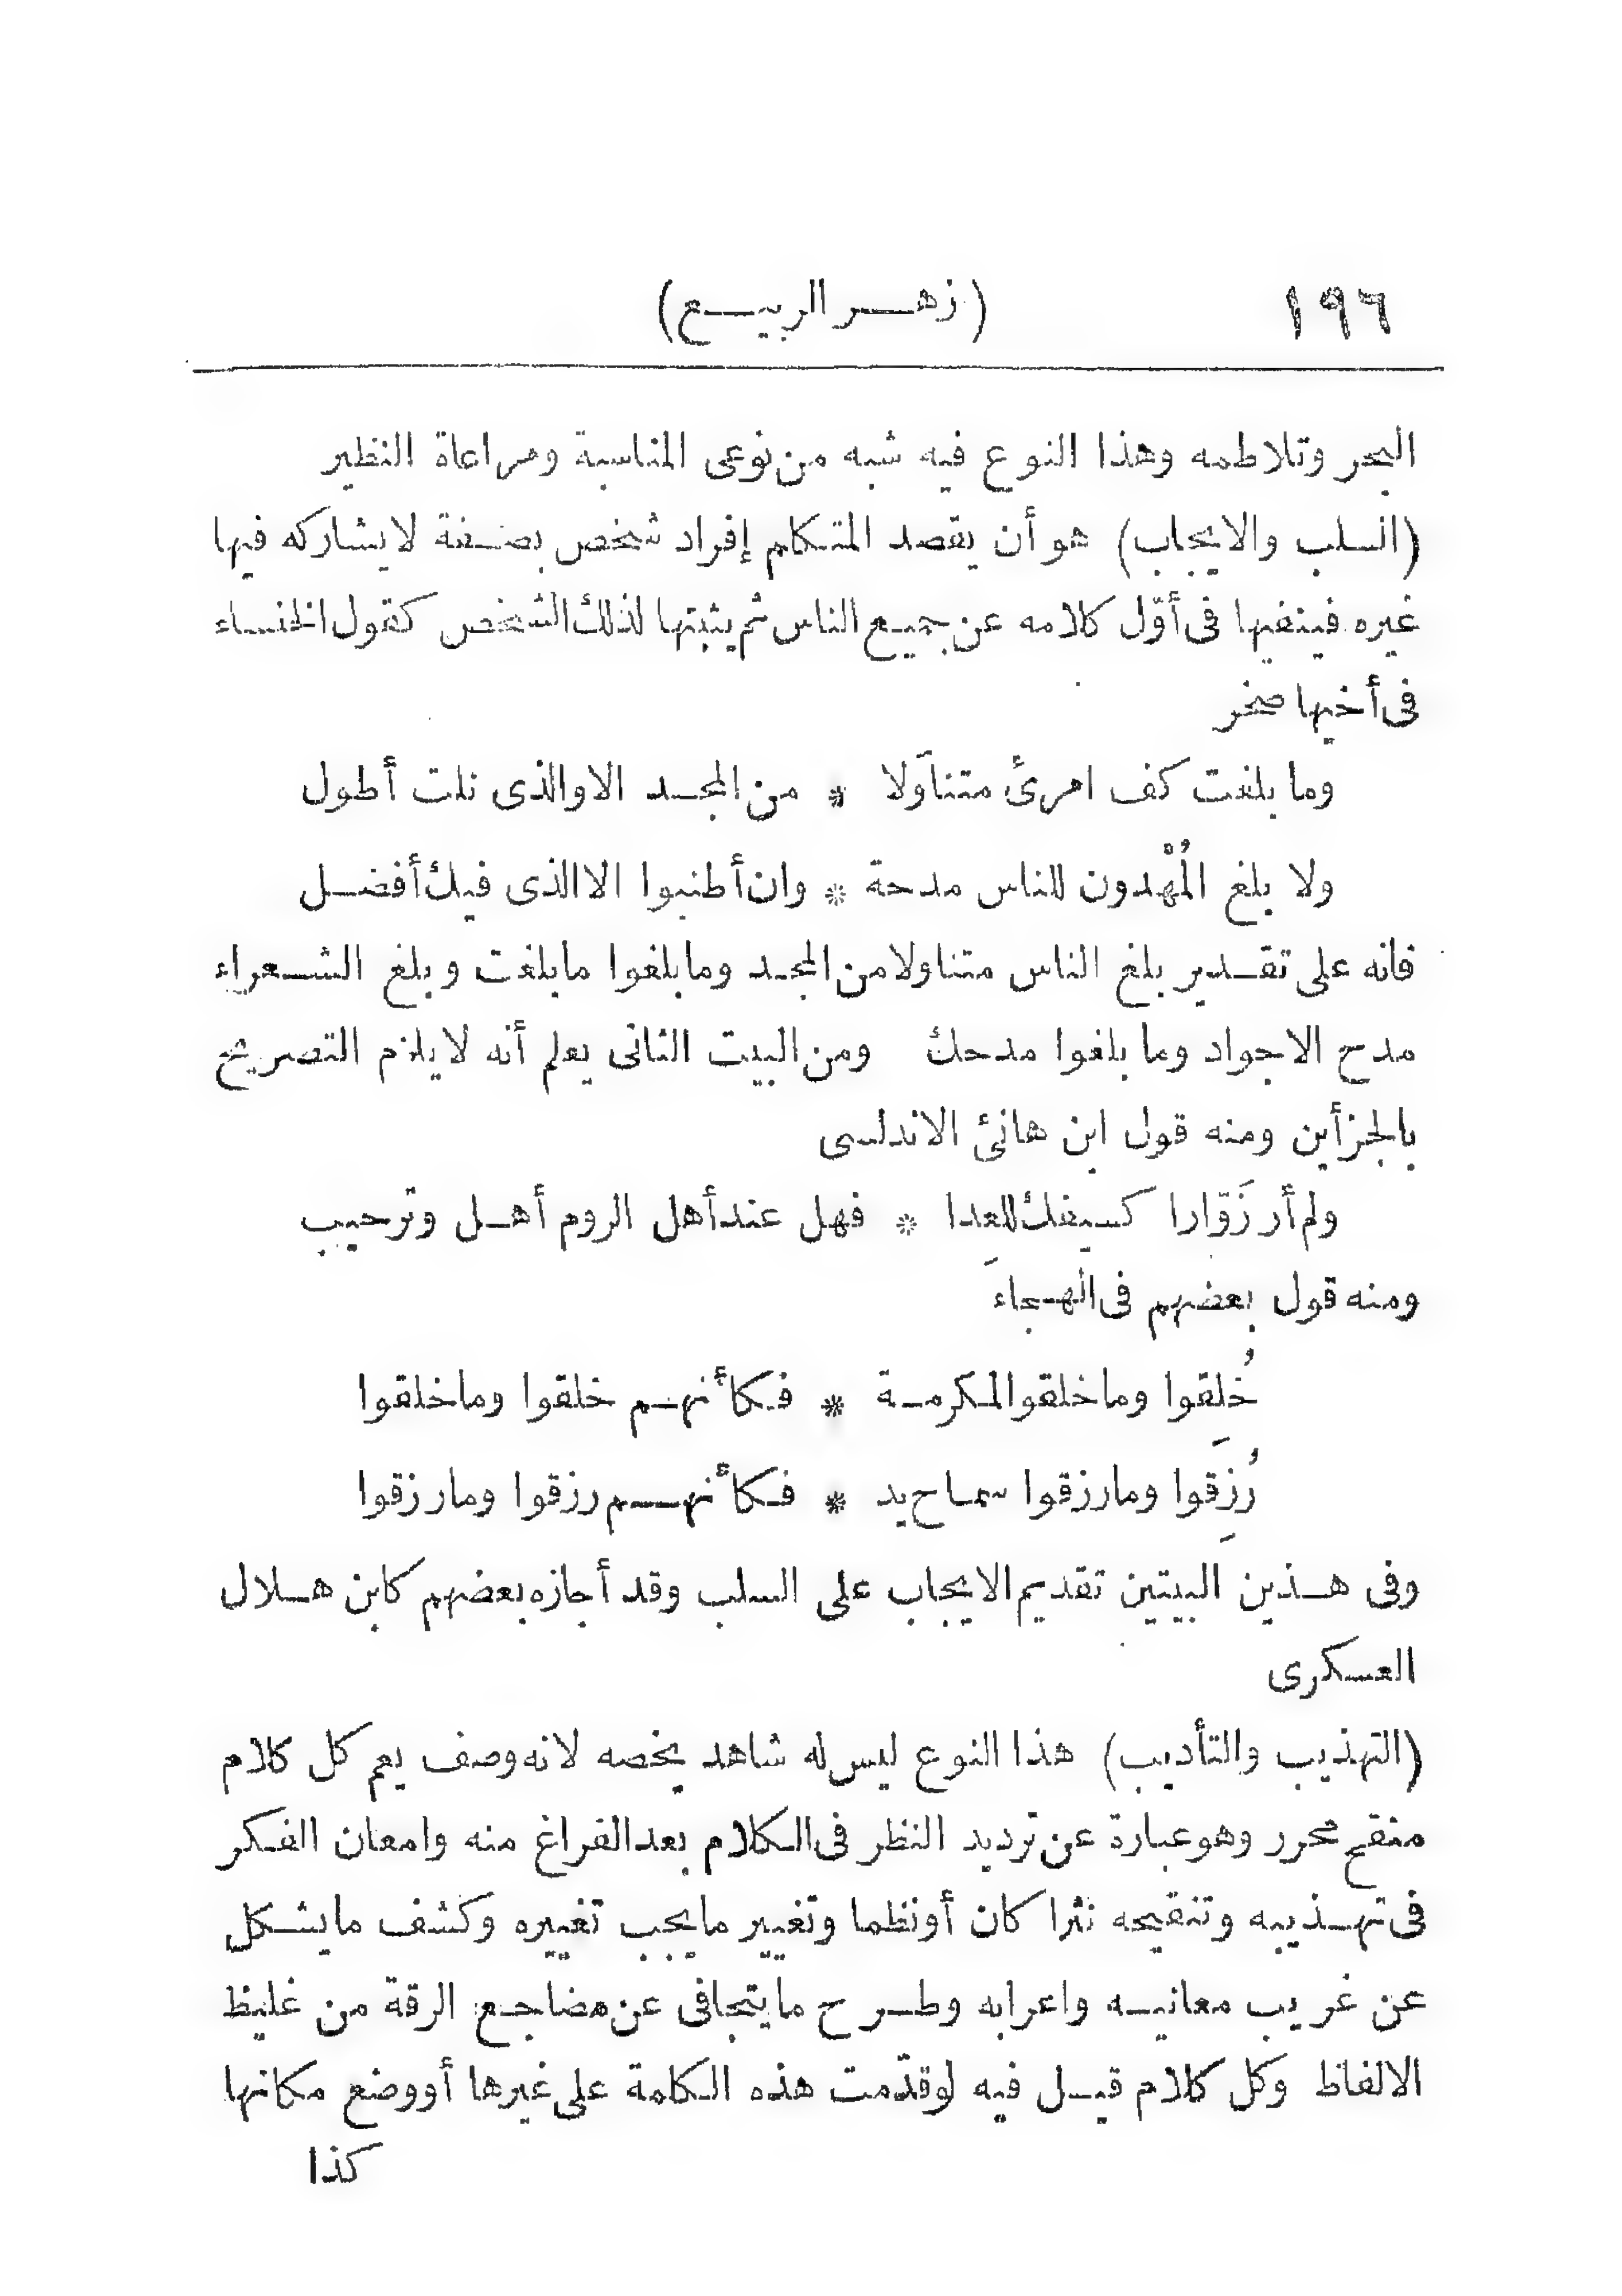 ١٩٦ (زهر الربيع)
البحر وتلاطمه وهذا النوع فيه شبه من نوعى المناسبة ومراعاة النظير
(السلب والايجاب) هو أن يقصد المتكلم إفراد شخص بصفة لا يشاركه فيها
غيره فينفيها فى أوّل كلامه عن جميع الناس ثم يثبتها لذلك الشخص كقول الخنساء
فى أخيها صخر
وما بلغت كف امرئ متناوَلا * من المجد الا والذى نلت أطول
ولا بلغ المُهْدون للناس مدحة * وان أطنبوا الا الذى فيك أفضل
فانه على تقدير بلغ الناس متناولا من المجد وما بلغوا ما بلغت وبلغ الشعراء
مدح الاجواد وما بلغوا مدحك ومن البيت الثانى يعلم أنه لا يلزم التصريح
بالجزأين ومنه قول ابن هانئ الاندلسى
ولم أر زَوّارا كسيفك للعِدا * فهل عند أهل الروم أهل وترحيب
ومنه قول بعضهم فى الهجاء
خُلِقوا وما خلقوا لمكرمة * فكأنهم خلقوا وما خلقوا
رُزِقوا وما رزقوا سماح يد * فكأنهم رزقوا وما رزقوا
وفى هذين البيتين تقديم الايجاب على السلب وقد أجازه بعضهم كابن هلال
العسكرى
(التهذيب والتأديب) هذا النوع ليس له شاهد يخصه لانه وصف يعم كل كلام
منقح محرر وهو عبارة عن ترديد النظر فى الكلام بعد الفراغ منه وامعان الفكر
فى تهذيبه وتنقيحه نثرا كان أو نظما وتغيير ما يجب تغييره وكشف ما يشكل
عن غريب معانيه واعرابه وطرح ما يتجافى عن مضاجع الرقة من غليظ
الالفاظ وكل كلام قيل فيه لو قدّمت هذه الكلمة على غيرها أو وضع مكانها
كذا